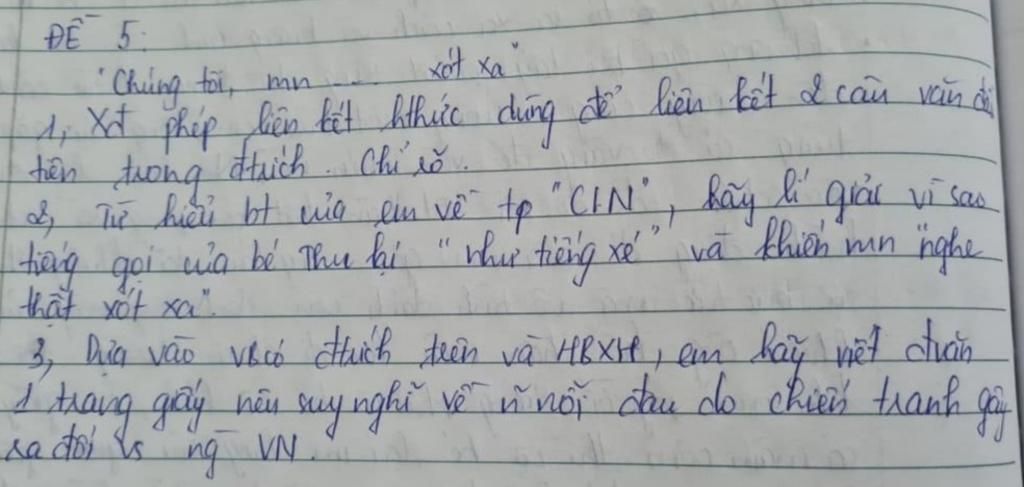 ĐỀ 5:
"Chúng tôi, mn ... xót xa"
1, Xđ phép liên kết hthức dùng để liên kết 2 câu văn đầu
tiên trong đtrích. Chỉ rõ.
2, Từ hiểu bt của em về tp "CLN", hãy lí giải vì sao
tiếng gọi của bé Thu lại "như tiếng xé" và khiến mn "nghe
thật xót xa".
3, Dựa vào vb có đtrích trên và HBXH, em hãy viết đvăn
1 trang giấy nêu suy nghĩ về n~ nỗi đau do chiến tranh gây
ra đối vs ng VN.